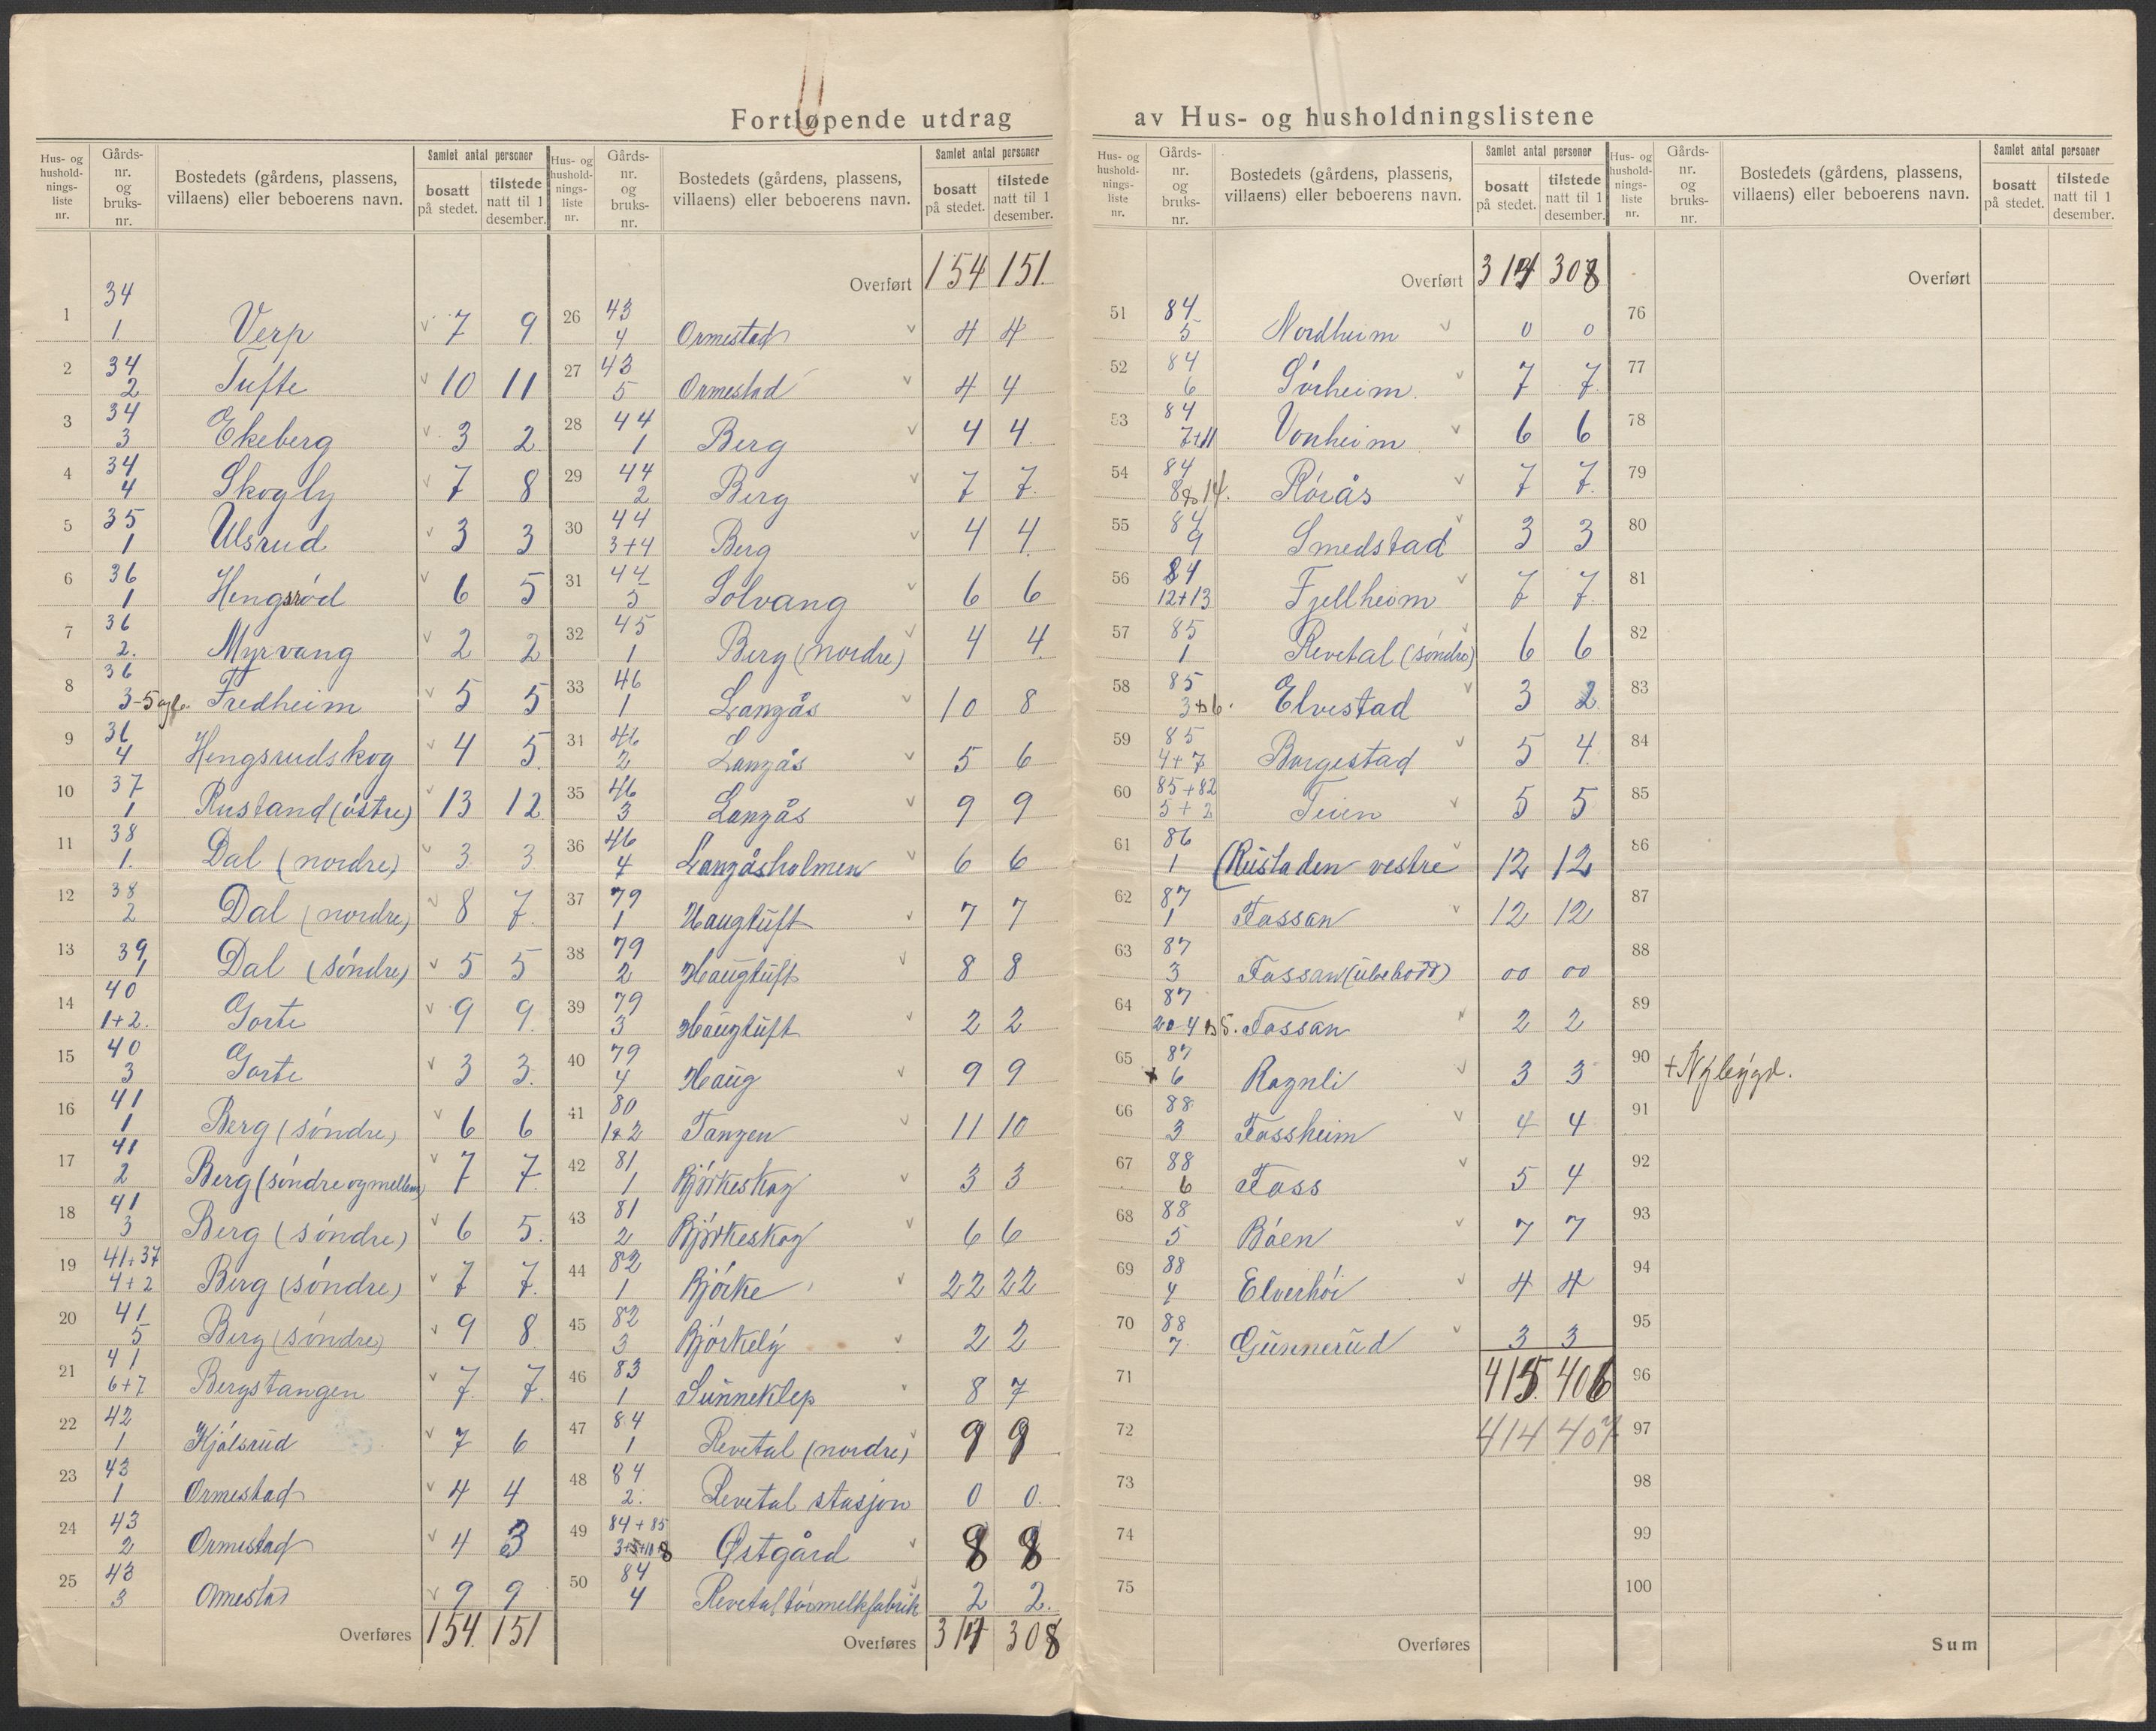 Fortløpende utdrag av Hus- og husholdningslistene
Hus- og hushold-nings-liste nr. Gårds-nr. og bruks-nr. Bostedets (gårdens, plassens, villaens) eller beboerens navn. Samlet antal personer bosatt på stedet. tilstede natt til 1 desember.
1 34 1. Verp v 7 9
2 34 2 Tufte v 10 11
3 34 3 Ekeberg v 3 2
4 34 4 Skogly v 7 8
5 35 1 Ulsrud v 3 3
6 36 1 Hengsrød v 6 5
7 36 2. Myrvang v 2 2
8 36 3-5 og 6. Fredheim v 5 5
9 36 4 Hengsrudskog v 4 5
10 37 1 Rustand (østre) v 13 12
11 38 1. Dal (nordre) v 3 3
12 38 2 Dal (nordre) v 8 7
13 39 1 Dal (søndre) v 5 5
14 40 1+2. Gorte v 9 9
15 40 3 Gorte v 3 3.
16 41 1 Berg (søndre) v 6 6
17 41 2 Berg (søndre og mellem) v 7 7
18 41 3 Berg (søndre) v 6 5.
19 41+37 4+2 Berg (søndre) v 7 7.
20 41 5 Berg (søndre) v 9 8
21 41 6+7 Bergstangen v 7. 7.
22 42 1 Kjølsrud v 7 6
23 43 1 Ormestad v 4 4
24 43 2 Ormestad v 4 3
25 43 3 Ormestad v 9 9
Overføres 154 151
Hus- og hushold-nings-liste nr. Gårds-nr. og bruks-nr. Bostedets (gårdens, plassens, villaens) eller beboerens navn. Samlet antal personer bosatt på stedet. tilstede natt til 1 desember.
Overført 154 151.
26 43 4 Ormestad v 4 4
27 43 5 Ormestad v 4 4
28 44 1 Berg v 4 4.
29 44 2 Berg v 7 7.
30 44 3+4 Berg v 4 4.
31 44 5 Solvang v 6 6
32 45 1 Berg (nordre) v 4 4
33 46 1 Langås v 10 8
31 46 2 Langås v 5 6
35 46 3 Langås v 9 9
36 46 4 Langåsholmen v 6 6
37 79 1 Haugtuft v 7 7
38 79 2 Haugtuft v 8 8
39 79 3 Haugtuft v 2 2
40 79 4 Haug v 9 9
41 80 1+2 Tangen v 11 10
42 81 1 Bjørkeskog v 3 3
43 81 2 Bjørkeskog v 6 6
44 82 1 Bjørke v 22 22
45 82 3 Bjørkely v 2 2
46 83 1 Sunneklep v 8 7
47 84 1 Revetal (nordre) v 9 9
48 84 2. Revetal stasjon 0 0.
49 84+85 Østgård v 8 8
50 84 4 Revetal tørmelkfabrik v 2 2.
Overføres 314 308
Hus- og hushold-nings-liste nr. Gårds-nr. og bruks-nr. Bostedets (gårdens, plassens, villaens) eller beboerens navn. Samlet antal personer bosatt på stedet. tilstede natt til 1 desember.
Overført 314 308
51 84 5 Nordheim v 0 0
52 84 6 Sørheim. v 7 7.
53 84 7+11 Vonheim v 6 6
54 84 8 14. Rørås v 7 7.
55 84 9 Smedstad v 3 3
56 84 12+13 Fjellheim v 7 7.
57 85 1 Revetal (søndre) v 6 6
58 85 3+6. Elvestad v 3 2.
59 85 4+7 Borgestad v 5 4.
60 85+82 5+2 Teien v 5 5
61 86 1 (Rustaden vestre v 12 12
62 87 1 Fossan v 12 12
63 87 3 Fossan (ubebodd) 00 00
64 87 5. Fossan v 2 2
65 87 + 6 Rognli v 3 3
66 88 3 Fossheim v 4 4
67 88 6 Foss v 5 4
68 88 5 Bøen v 7 7
69 88 4 Elverhøi v 4 4
70 88 7 Gunnerud v 3 3
71 415. 406
72 414 407
73
74
75
Overføres
Hus- og hushold-nings-liste nr. Gårds-nr. og bruks-nr. Bostedets (gårdens, plassens, villaens) eller beboerens navn. Samlet antal personer bosatt på stedet. tilstede natt til 1 desember.
Overført
76
77
78
79
80
81
82
83
84
85
86
87
88
89
90 + Nybygd.
91
92
93
94
95
96
97
98
99
100
Sum